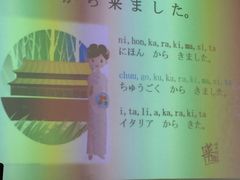 から来ました。
ni, hon, ka, ra, ki, ma, si, ta
にほん から きました。
chuu, go, ku, ka, ra, ki, ma, si, ta
ちゅうごく から きました。
i, ta, li, a, ka, ra, ki, ta
イタリア から きた。